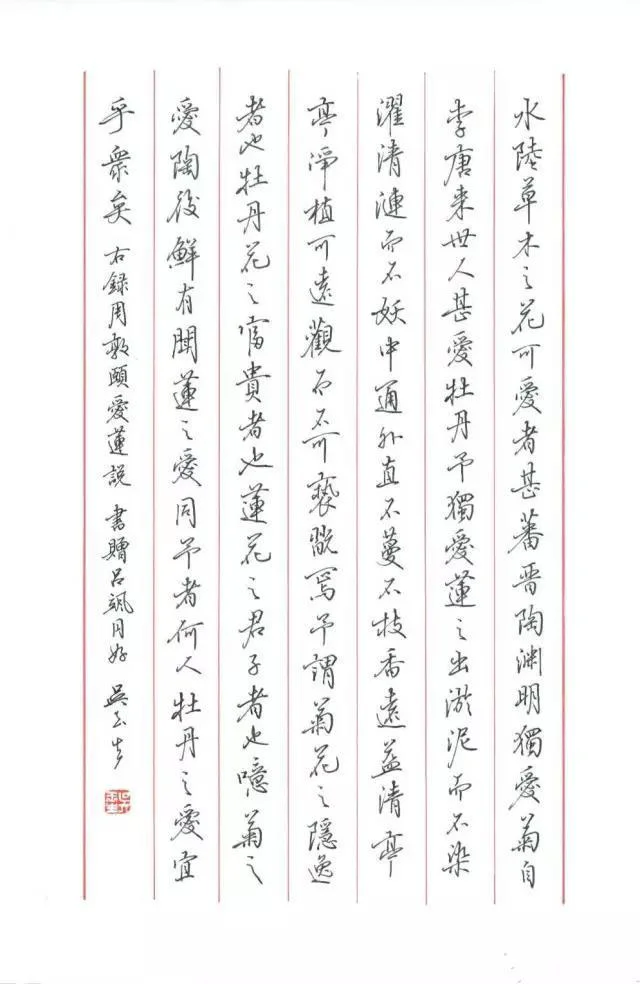 水陸草木之花可愛者甚蕃晉陶淵明獨愛菊自
李唐来世人甚愛牡丹予獨愛蓮之出淤泥而不染
濯清漣而不妖中通外直不蔓不枝香遠益清亭
亭淨植可遠觀而不可褻翫焉予謂菊花之隱逸
者也牡丹花之富貴者也蓮花之君子者也噫菊之
愛陶後鮮有聞蓮之愛同予者何人牡丹之愛宜
乎衆矣 右録周敦頤愛蓮説 書贈呂颯同好 吳玉生